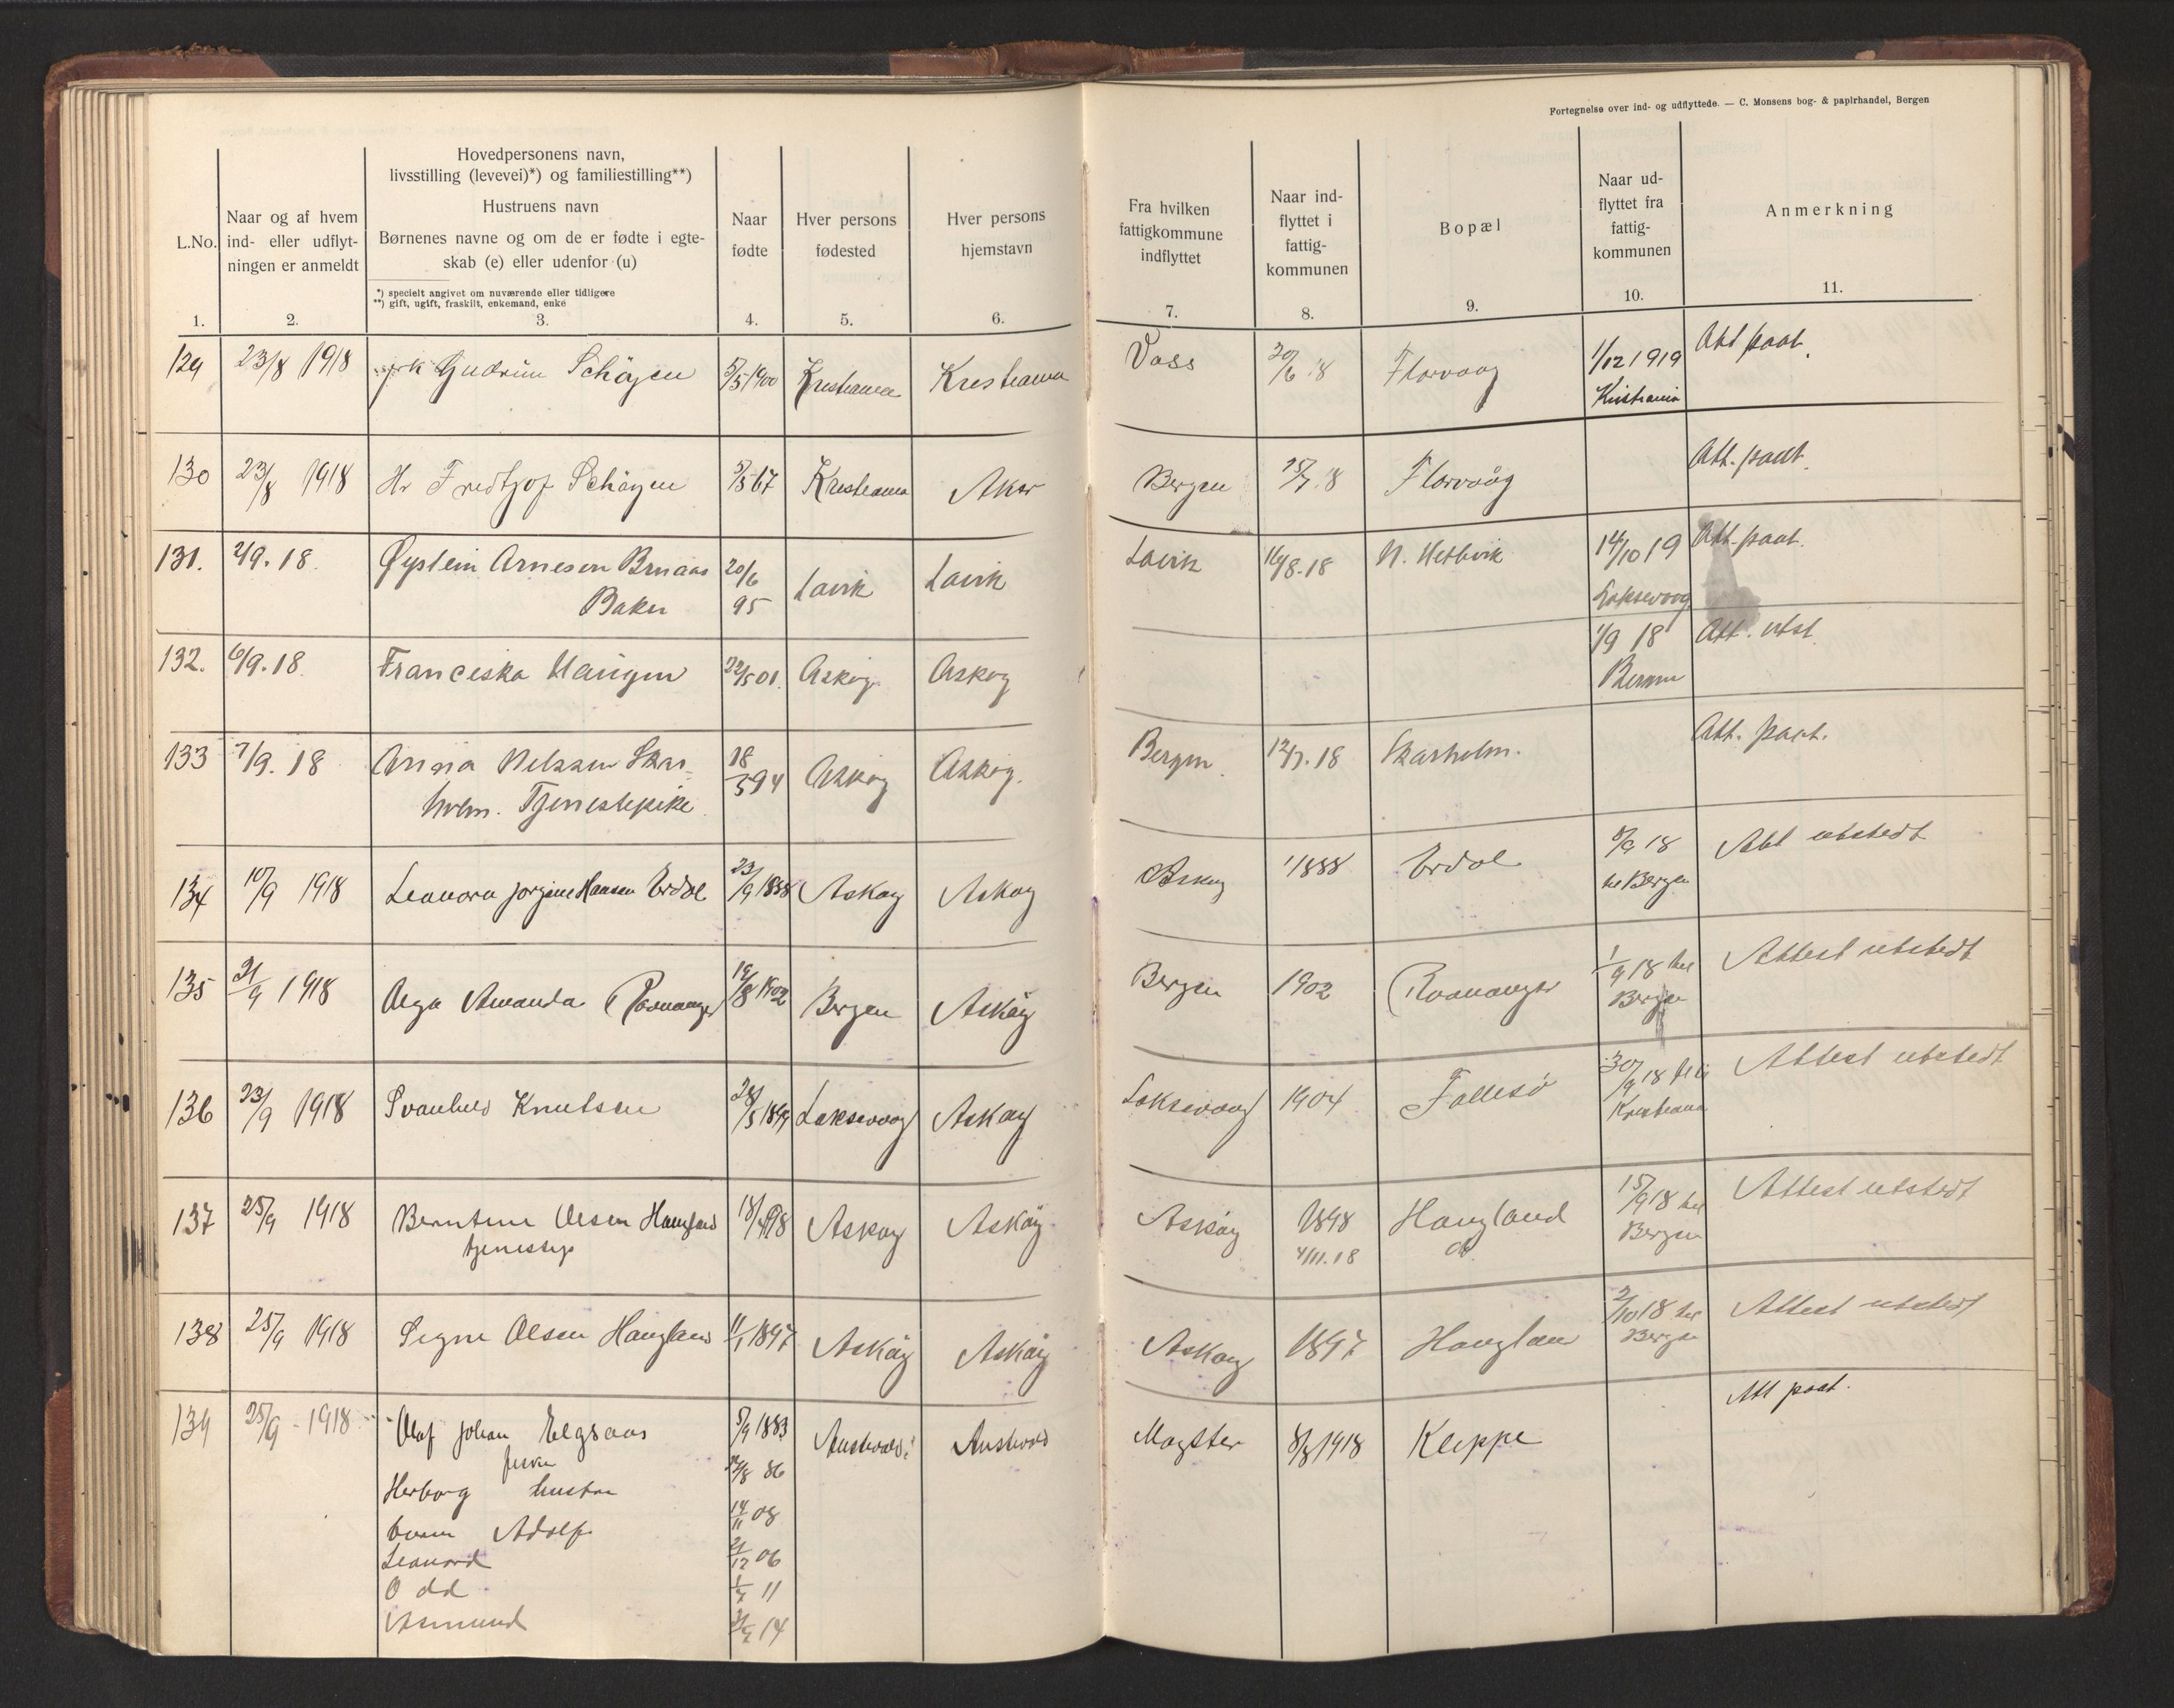 Fortegnelse over ind- og udflyttede. — C. Monsens bog- & papirhandel, Bergen
L.No.
1.
Naar og af hvem
ind- eller udflyt-
ningen er anmeldt
2.
Hovedpersonens navn,
livsstilling (levevei)*) og familiestilling**)
Hustruens navn
Børnenes navne og om de er fødte i egte-
skab (e) eller udenfor (u)
*) specielt angivet om nuværende eller tidligere
**) gift, ugift, fraskilt, enkemand, enke
3.
Naar
fødte
4.
Hver persons
fødested
5.
Hver persons
hjemstavn
6.
Fra hvilken
fattigkommune
indflyttet
7.
Naar ind-
flyttet i
fattig-
kommunen
8.
Bopæl
9.
Naar ud-
flyttet fra
fattig-
kommunen
10.
Anmerkning
11.
129 23/8 1918 Gudrun Schøyen 5/5 1900 Kristiania Kristiania Voss 30/6 18 Florvaag 1/12 1919 Att paat.
Kristiania
130 23/8 1918 Hr Fredtjof Schøyen 67 Kristiania Aker Bergen 15/7 18 Florvåg Att. paat.
131. 2/9. 18. Øystein Arnesen 20/6 Lavik Lavik Lavik 16/8-18 N. Hetlevik 14/10 19 Att. paat.
Baker 95 Laksevaag
132. 6/9. 18. Franciska Haugen 22/5 01. Askøy Askøy 1/9 18 Att. utst.
Bergen
133 7/9. 18 Anna Nelssen Skar- 18 Askøy Askøy. Bergen 12/7. 18 Skarholm. Att. paat.
holm. Tjenestepike 594
134 10/9 1918 Leonora Jorgine Hansen Erdal 23/9 1888 Askøy Askøy Askøy 1888 Erdal 9/9 18 Att utstedt
til Bergen
135 21/9 1918 Olga Amanda Ravnanger 19/8 1902 Bergen Askøy Bergen 1902 Ravnanger 1/9 18 til Attest utstedt
Bergen
136 23/9 1918 Svanhild Knutsen 28/5 1899 Laksevaag Askøy Laksevaag 1904 Follesø 30/9 18 til Attest utstedt
Kristiania
137 25/9 1918 Berntine Olsen Haugland 18/4 98 Askøy Askøy Askøy 1898 Haugland 15/9 18 til Attest utstedt
tjenestep 4/11. 18 do Bergen
138 25/9 1918 Signe Olsen Haugland 11/1 1897 Askøy Askøy Askøy 1897 Haugland 2/10 18 til Attest utstedt
Bergen
139 25/9 - 1918 Olaf Johan Elgsaas 5/9 1883 Austevold Austevold Møgster 8/8 1918 Kleppe Att paat.
fisker
Herborg hustru 86
barn Adolf 14/11 08
Leonard 21/12 06
Odd 11
Asmund 14